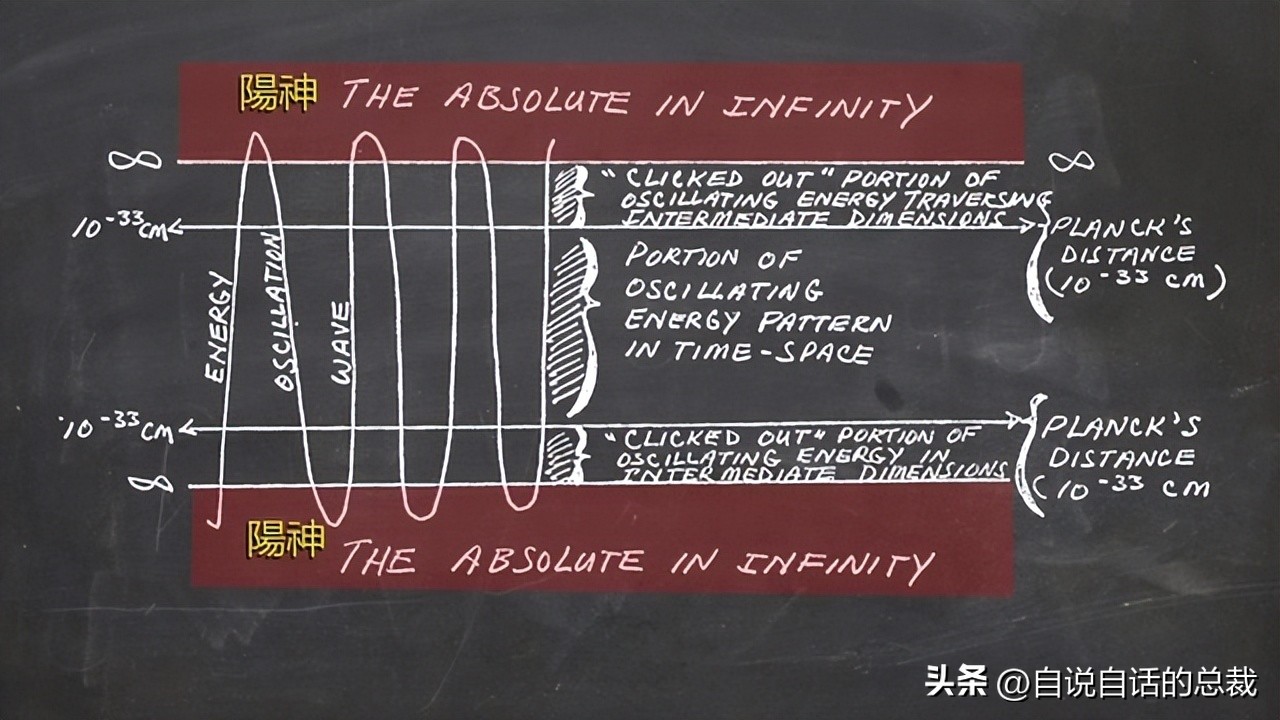 陽神 THE ABSOLUTE IN INFINITY
∞
∞
"CLICKED OUT" PORTION OF
OSCILLATING ENERGY TRAVERSING
INTERMEDIATE DIMENSIONS
10-33cm
PLANCK'S
DISTANCE
(10-33 cm)
PORTION OF
OSCILLATING
ENERGY PATTERN
IN TIME-SPACE
ENERGY
OSCILLATION
WAVE
10-33cm
"CLICKED OUT" PORTION OF
OSCILLATING ENERGY IN
INTERMEDIATE DIMENSIONS
PLANCK'S
DISTANCE
(10-33 cm
∞
陽神 THE ABSOLUTE IN INFINITY
头条 @自说自话的总裁